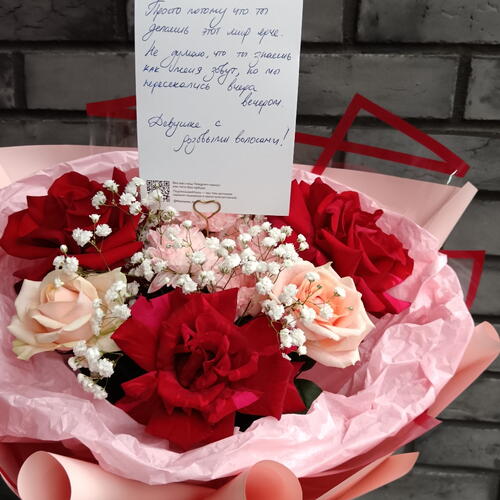 Просто потому что ты
делаешь этот мир ярче.
Не думаю, что ты знаешь
как меня зовут, но мы
пересекались вчера
вечером.
Девушке с
розовыми волосами!